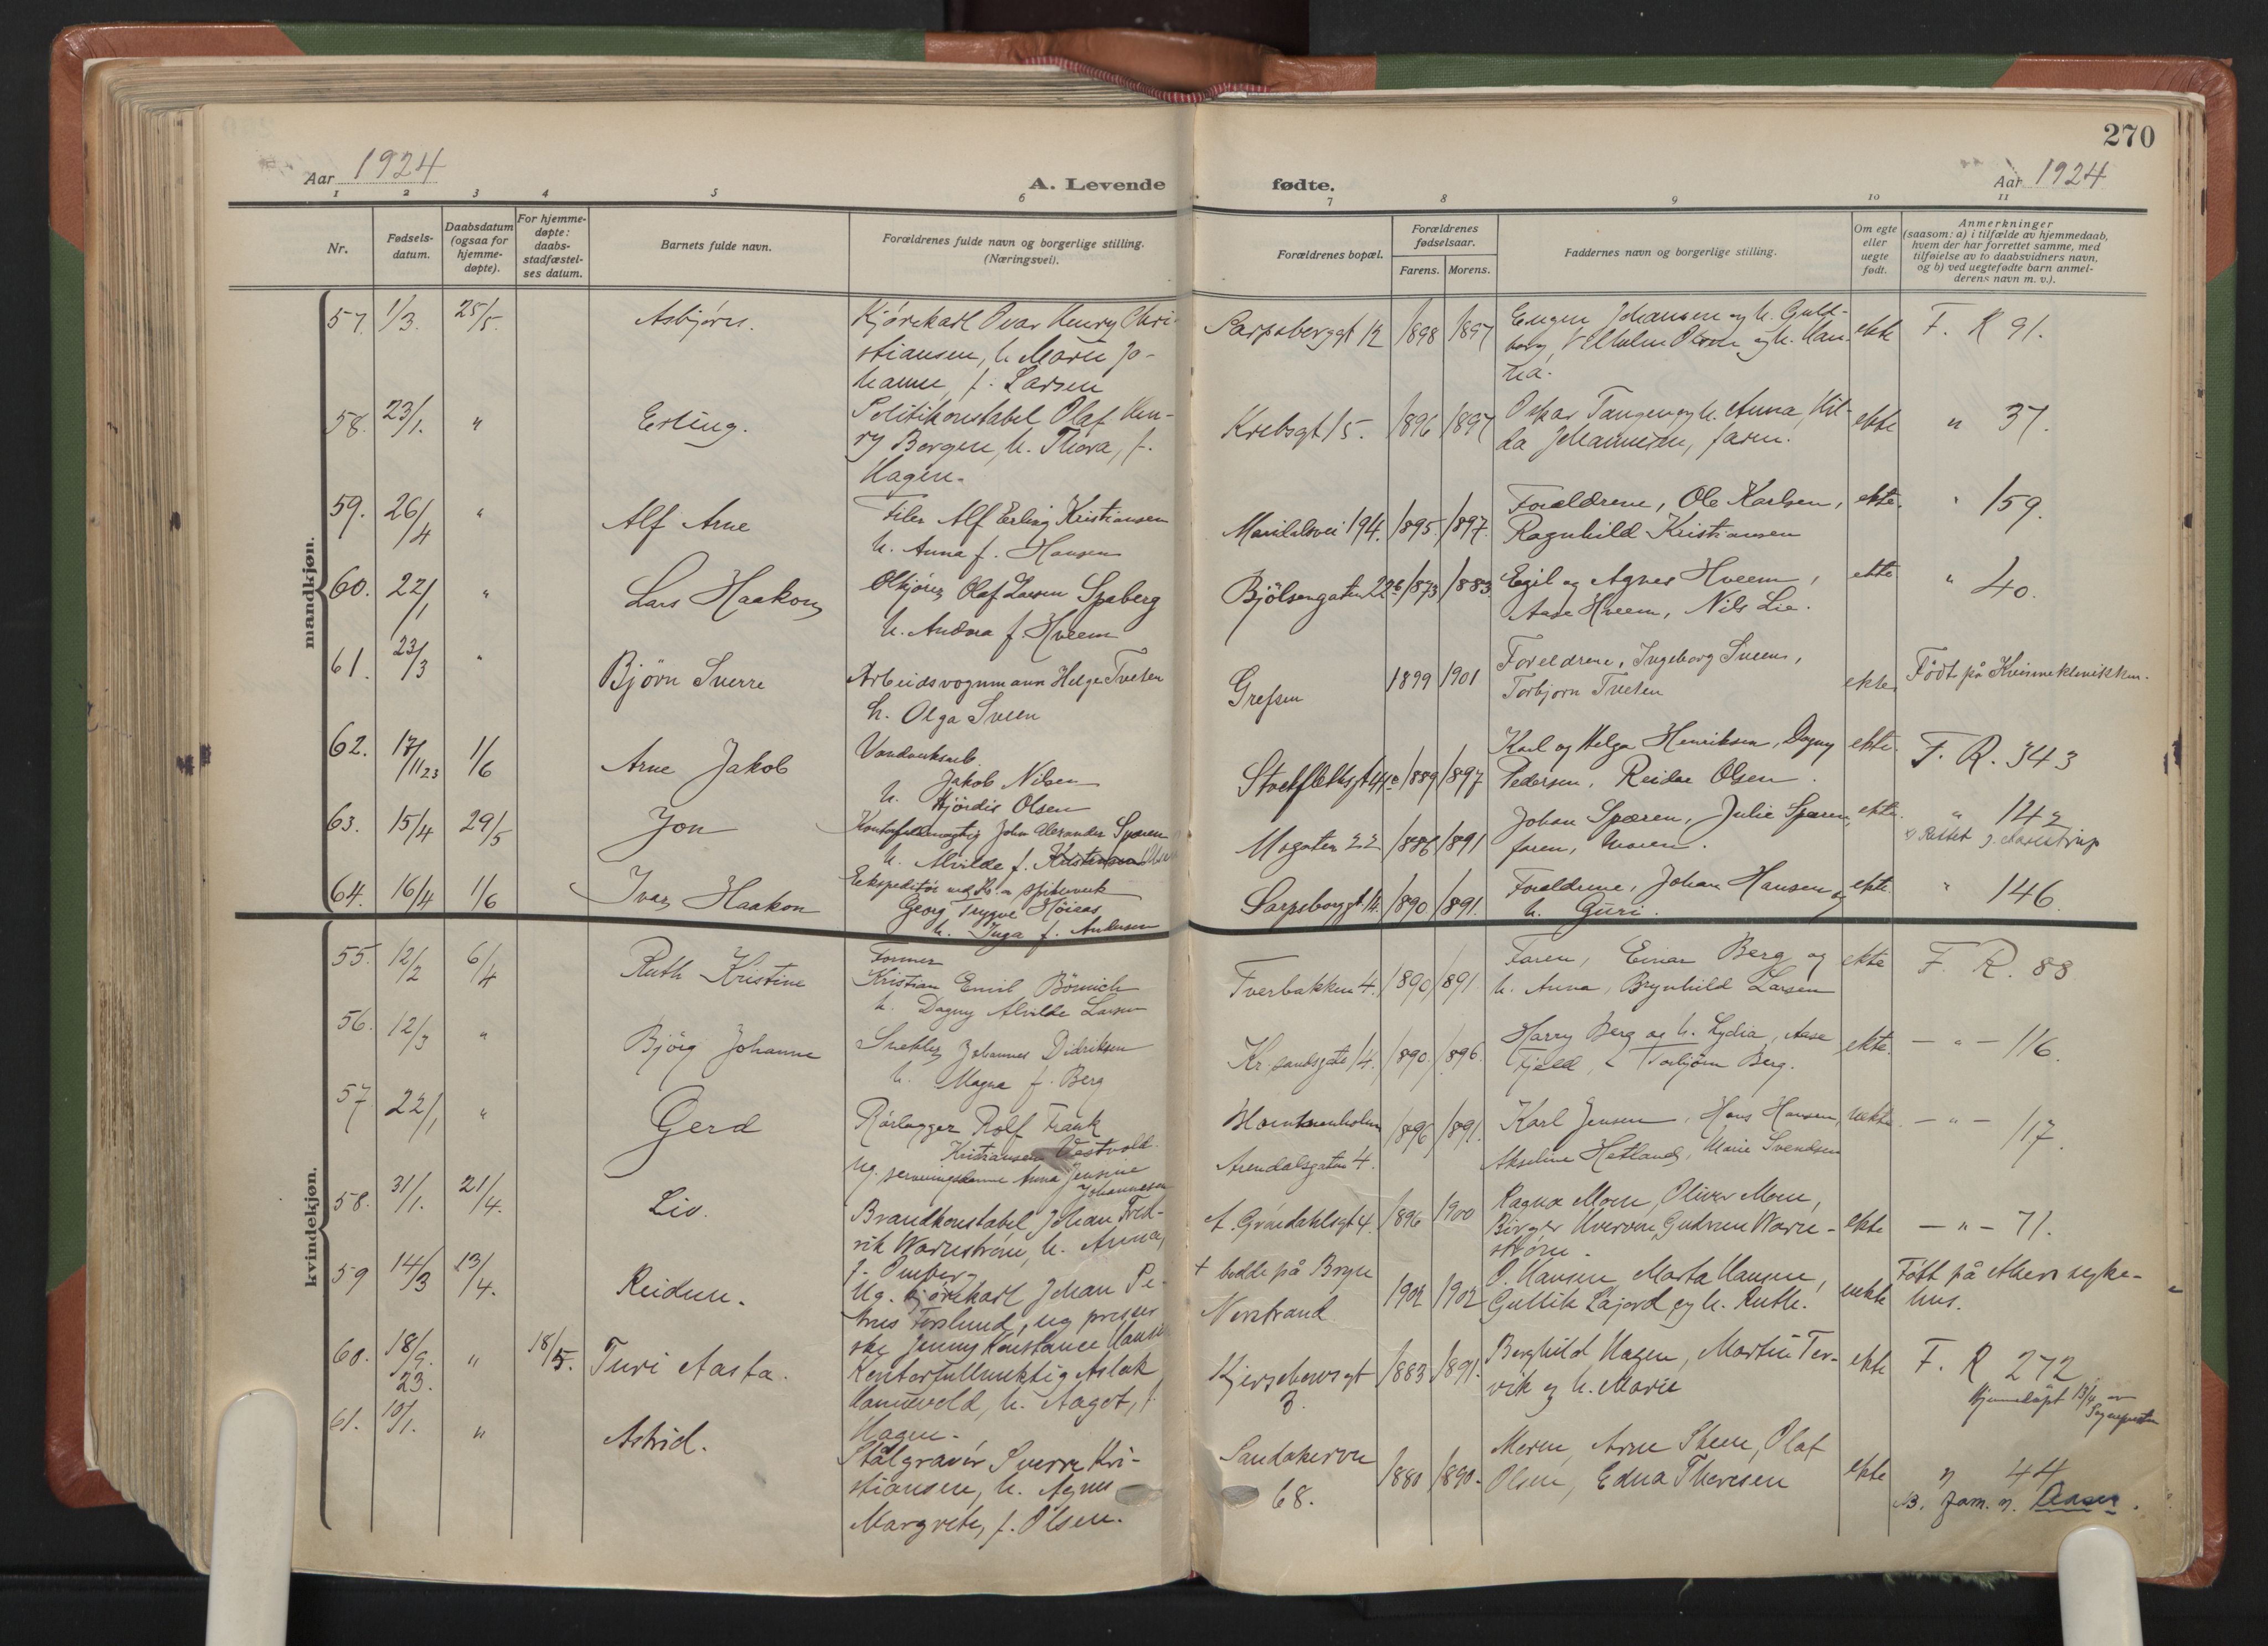 270
Aar 1924
A. Levende fødte.
Aar 1924
1 2 3 4 5 6 7 8 9 10 11
Nr.
Fødsels-
datum.
Daabsdatum
(ogsaa for
hjemme-
døpte).
For hjemme-
døpte:
daabs-
stadfæstel-
ses datum.
Barnets fulde navn.
Forældrenes fulde navn og borgerlige stilling.
(Næringsvei).
Forældrenes bopæl.
Forældrenes
fødselsaar.
Farens. Morens.
Faddernes navn og borgerlige stilling.
Om egte
eller
uegte
født.
Anmerkninger
(saasom: a) i tilfælde av hjemmedaab,
hvem der har forrettet samme, med
tilføielse av to daabsvidners navn,
og b) ved uegtefødte barn anmel-
derens navn m. v.).
mandkjøn.
57. 1/3. 25/5. Asbjørn.
Kjørekarl Ovar Henry Chri-
stiansen, h. Marie Jo-
hanne, f. Larsen
Sarpsborggt 12 1898 1897
Eugen Johansen og h. Guld-
borg, Vilhelm Olsen og h. Han-
na.
ekte F. R 91.
58. 23/1. " Erling.
Politikonstabel Olaf Hen-
ry Borgen, h. Thora, f.
Hagen.
Krebsgt 15. 1896 1897
Oskar Tangen og h. Anna, Hil-
da Johannesen, faren.
ekte " 37.
59. 26/4 " Alf Arne
Filer Alf Erling Kristiansen
h. Anna f. Hansen
Maridalsvei 194. 1895. 1897.
Foreldrene, Ole Karlsen,
Ragnhild Kristiansen
ekte. " 159.
60. 22/1 " Lars Haakon
Ølkjører Olaf Larsen Spaberg
h. Andrea f. Hveem
Bjölsengaten 22 b 1873 1883.
Egil og Agnes Hveem,
Aase Hveem, Nils Lie.
ekte " 40.
61. 23/3 " Bjørn Sverre
Arbeidsvognmann Helge Tveten
h. Olga Sveen
Grefsen 1899 1901
Foreldrene, Ingeborg Sveen,
Torbjørn Tveten
ekte Födt på Kvinneklinikken.
62. 17/11 23 1/6 Arne Jakob
Vandverksarb.
Jakob Nilsen
h. Hjördis Olsen
1889 1897
Karl og Helga Henriksen, Dagny
Pedersen, Reidar Olsen.
ekte. F. R. 343
63. 15/4 29/5 Jon
Kontorfullmægtig John Alexander Spæren
h. Alvilde f. Kristensen Olsen
Mogaten 22 1886 1891
Johan Spæren, Julie Spæren,
faren, moren.
ekte. " 142
Rettet J. Aarestrup
64. 16/4 1/6 Ivar Haakon
Ekspeditör ved Kr.a spikerverk
Georg Trygve Höiaas
h. Inga f. Andersen
Sarpsborggt. 12. 1890. 1891.
Foreldrene, Johan Hansen og
h. Guri.
ekte. " 146.
kvindekjøn.
55. 12/2 6/4 Ruth Kristine
Former
Kristian Emil Bönnich
h. Dagny Alvilde Larsen
Tverbakken 4. 1890 1891.
Faren, Einar Berg og
h. Anna, Brynhild Larsen
ekte F. R. 88
56. 12/3 " Bjórg Johanne
Snekker Johannes Didriksen
h. Magna f. Berg
Kr.sandsgate 14. 1890. 1896.
Harry Berg og h. Lydia, Aase
Fjeld, Torbjörn Berg.
ekte. — " — 116.
57 22/1 " Gerd
Rörlegger Rolf Frank
Kristiansen Vestvold.
ug. serveringsdame Anna Jensine
Johannesen
Blomsenholm
Arendalsgaten 4. 1896 1891.
Karl Jensen, Hans Hansen,
Akseline Hetland, Marie Svendsen
uekte. — " — 117.
58. 31/1. 21/4. Liv.
Brandkonstabel Johan Fred-
rik Warnström, h. Anna,
f. Omberg
A. Gröndahlsgt 4. 1896 1900
Ragna Moen, Oliver Moen,
Birger Hverven, Gudrun Warn-
ström.
ekte — " — 71.
59 14/3 13/4. Reidun.
Ug. kjörekarl Johan Pe-
Forslund, ug presser-
ske Jenny Konstance Hansen
+ bodde på Bryn
Norstrand 1902 1902
O. Hansen, Marta Hansen,
Gullik Lajord og h. Ruth.
uekte Födt på Akers syke-
hus.
60. 18/9. 23. " 18/5. Turi Aasta.
Kontorfullmektig Aslak
Haudveld, h. Aagot, f.
Hagen.
Kjerschowsgt
3. 1883 1891.
Borghild Hagen, Martin Ter-
vik og h. Marie
ekte F. R 272
Hjemmedöpt 13/4 av
Sogneprosten
61. 10/1. " Astrid.
Stålgravör Sverre Kri-
stiansen, h. Agnes
Margrete, f. Olsen.
Sandakervn
68. 1880 1890.
Moren, Arne Steen, Olaf
Olsen, Edna Thoresen
ekte " 44
NB. fam. n. Aaser.